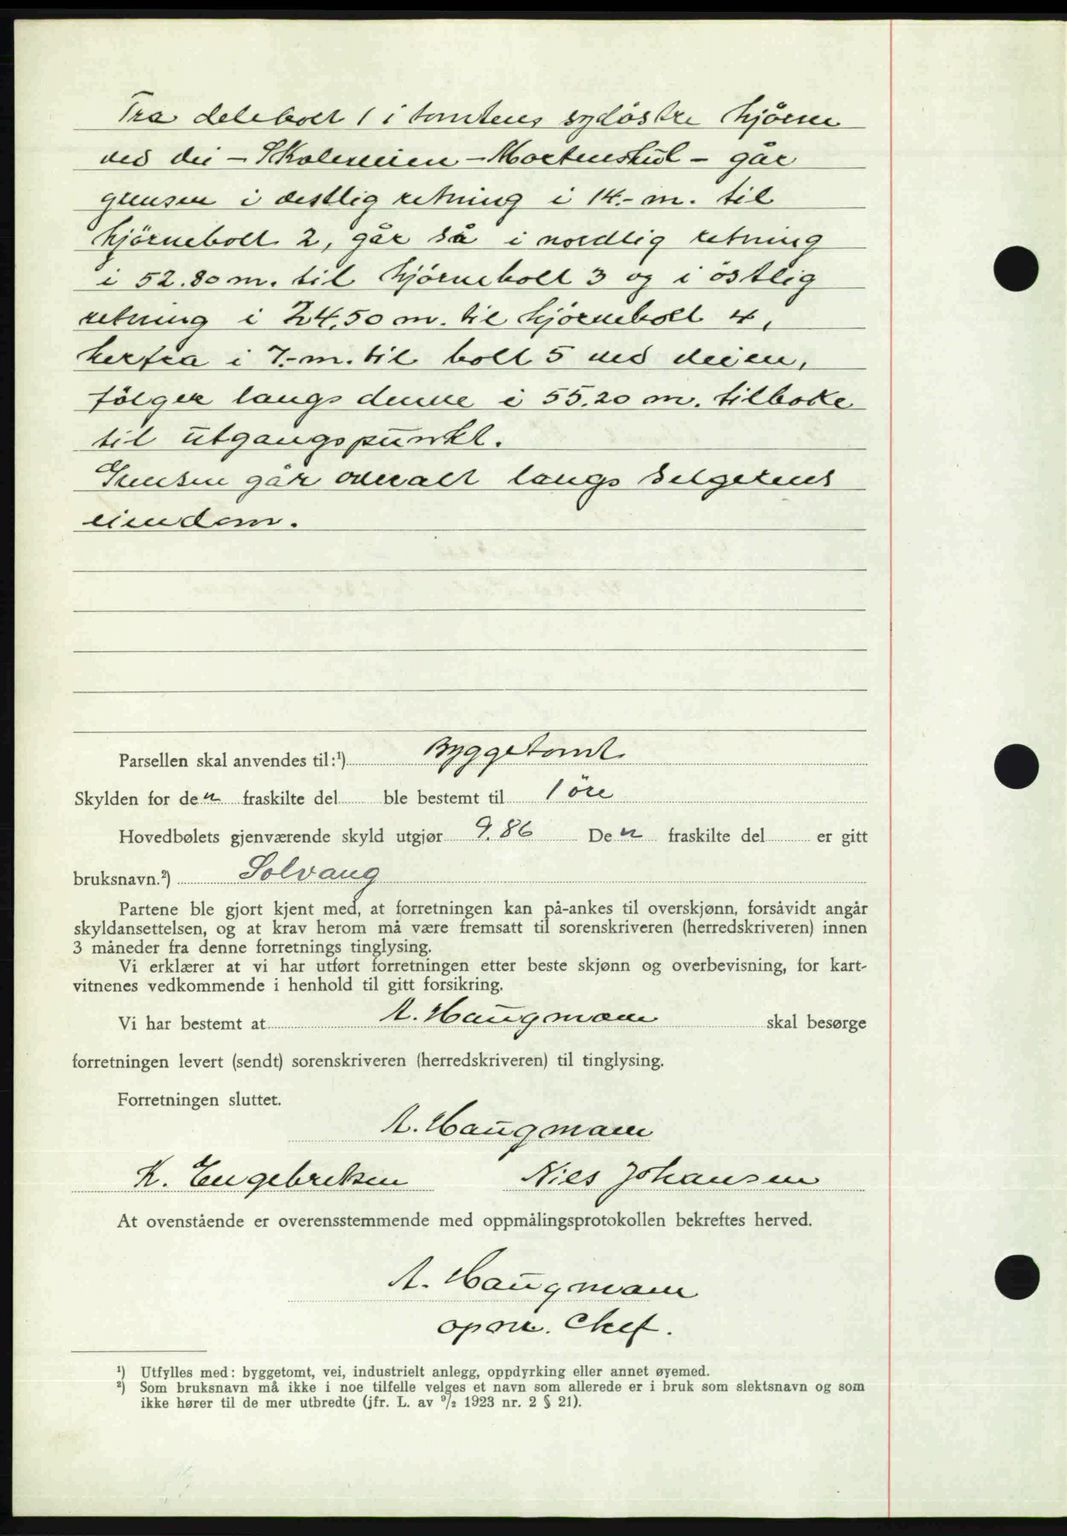 Fra delebolt 1 i tomtens sydöstre hjörne
ved vei - Skoleveien - Mortenshul - går
grensen i vestlig retning i 14.- m. til
hjörnebolt 2, går så i nordlig retning
i 52.80 m. til hjörnebolt 3 og i östlig
retning i 24.50 m. til hjörnebolt 4,
herfra i 7.- m. til bolt 5 ved veien,
fölger langs denne i 55.20 m. tilbake
til utgangspunkt.
Grensen går overalt langs selgerens
eiendom.
Parsellen skal anvendes til:¹) Byggetomt
Skylden for den fraskilte del ble bestemt til 1 öre
Hovedbølets gjenværende skyld utgjør 9.86 Den fraskilte del er gitt
bruksnavn.²) Solvang
Partene ble gjort kjent med, at forretningen kan på-ankes til overskjønn, forsåvidt angår
skyldansettelsen, og at krav herom må være fremsatt til sorenskriveren (herredskriveren) innen
3 måneder fra denne forretnings tinglysing.
Vi erklærer at vi har utført forretningen etter beste skjønn og overbevisning, for kart-
vitnenes vedkommende i henhold til gitt forsikring.
Vi har bestemt at A. Haugmann skal besørge
forretningen levert (sendt) sorenskriveren (herredskriveren) til tinglysing.
Forretningen sluttet.
A. Haugmann
K. Engebretsen Nils Johansen
At ovenstående er overensstemmende med oppmålingsprotokollen bekreftes herved.
A. Haugmann
opm. Chef.
¹) Utfylles med: byggetomt, vei, industrielt anlegg, oppdyrking eller annet øyemed.
²) Som bruksnavn må ikke i noe tilfelle velges et navn som allerede er i bruk som slektsnavn og som
ikke hører til de mer utbredte (jfr. L. av ⁹/₂ 1923 nr. 2 § 21).